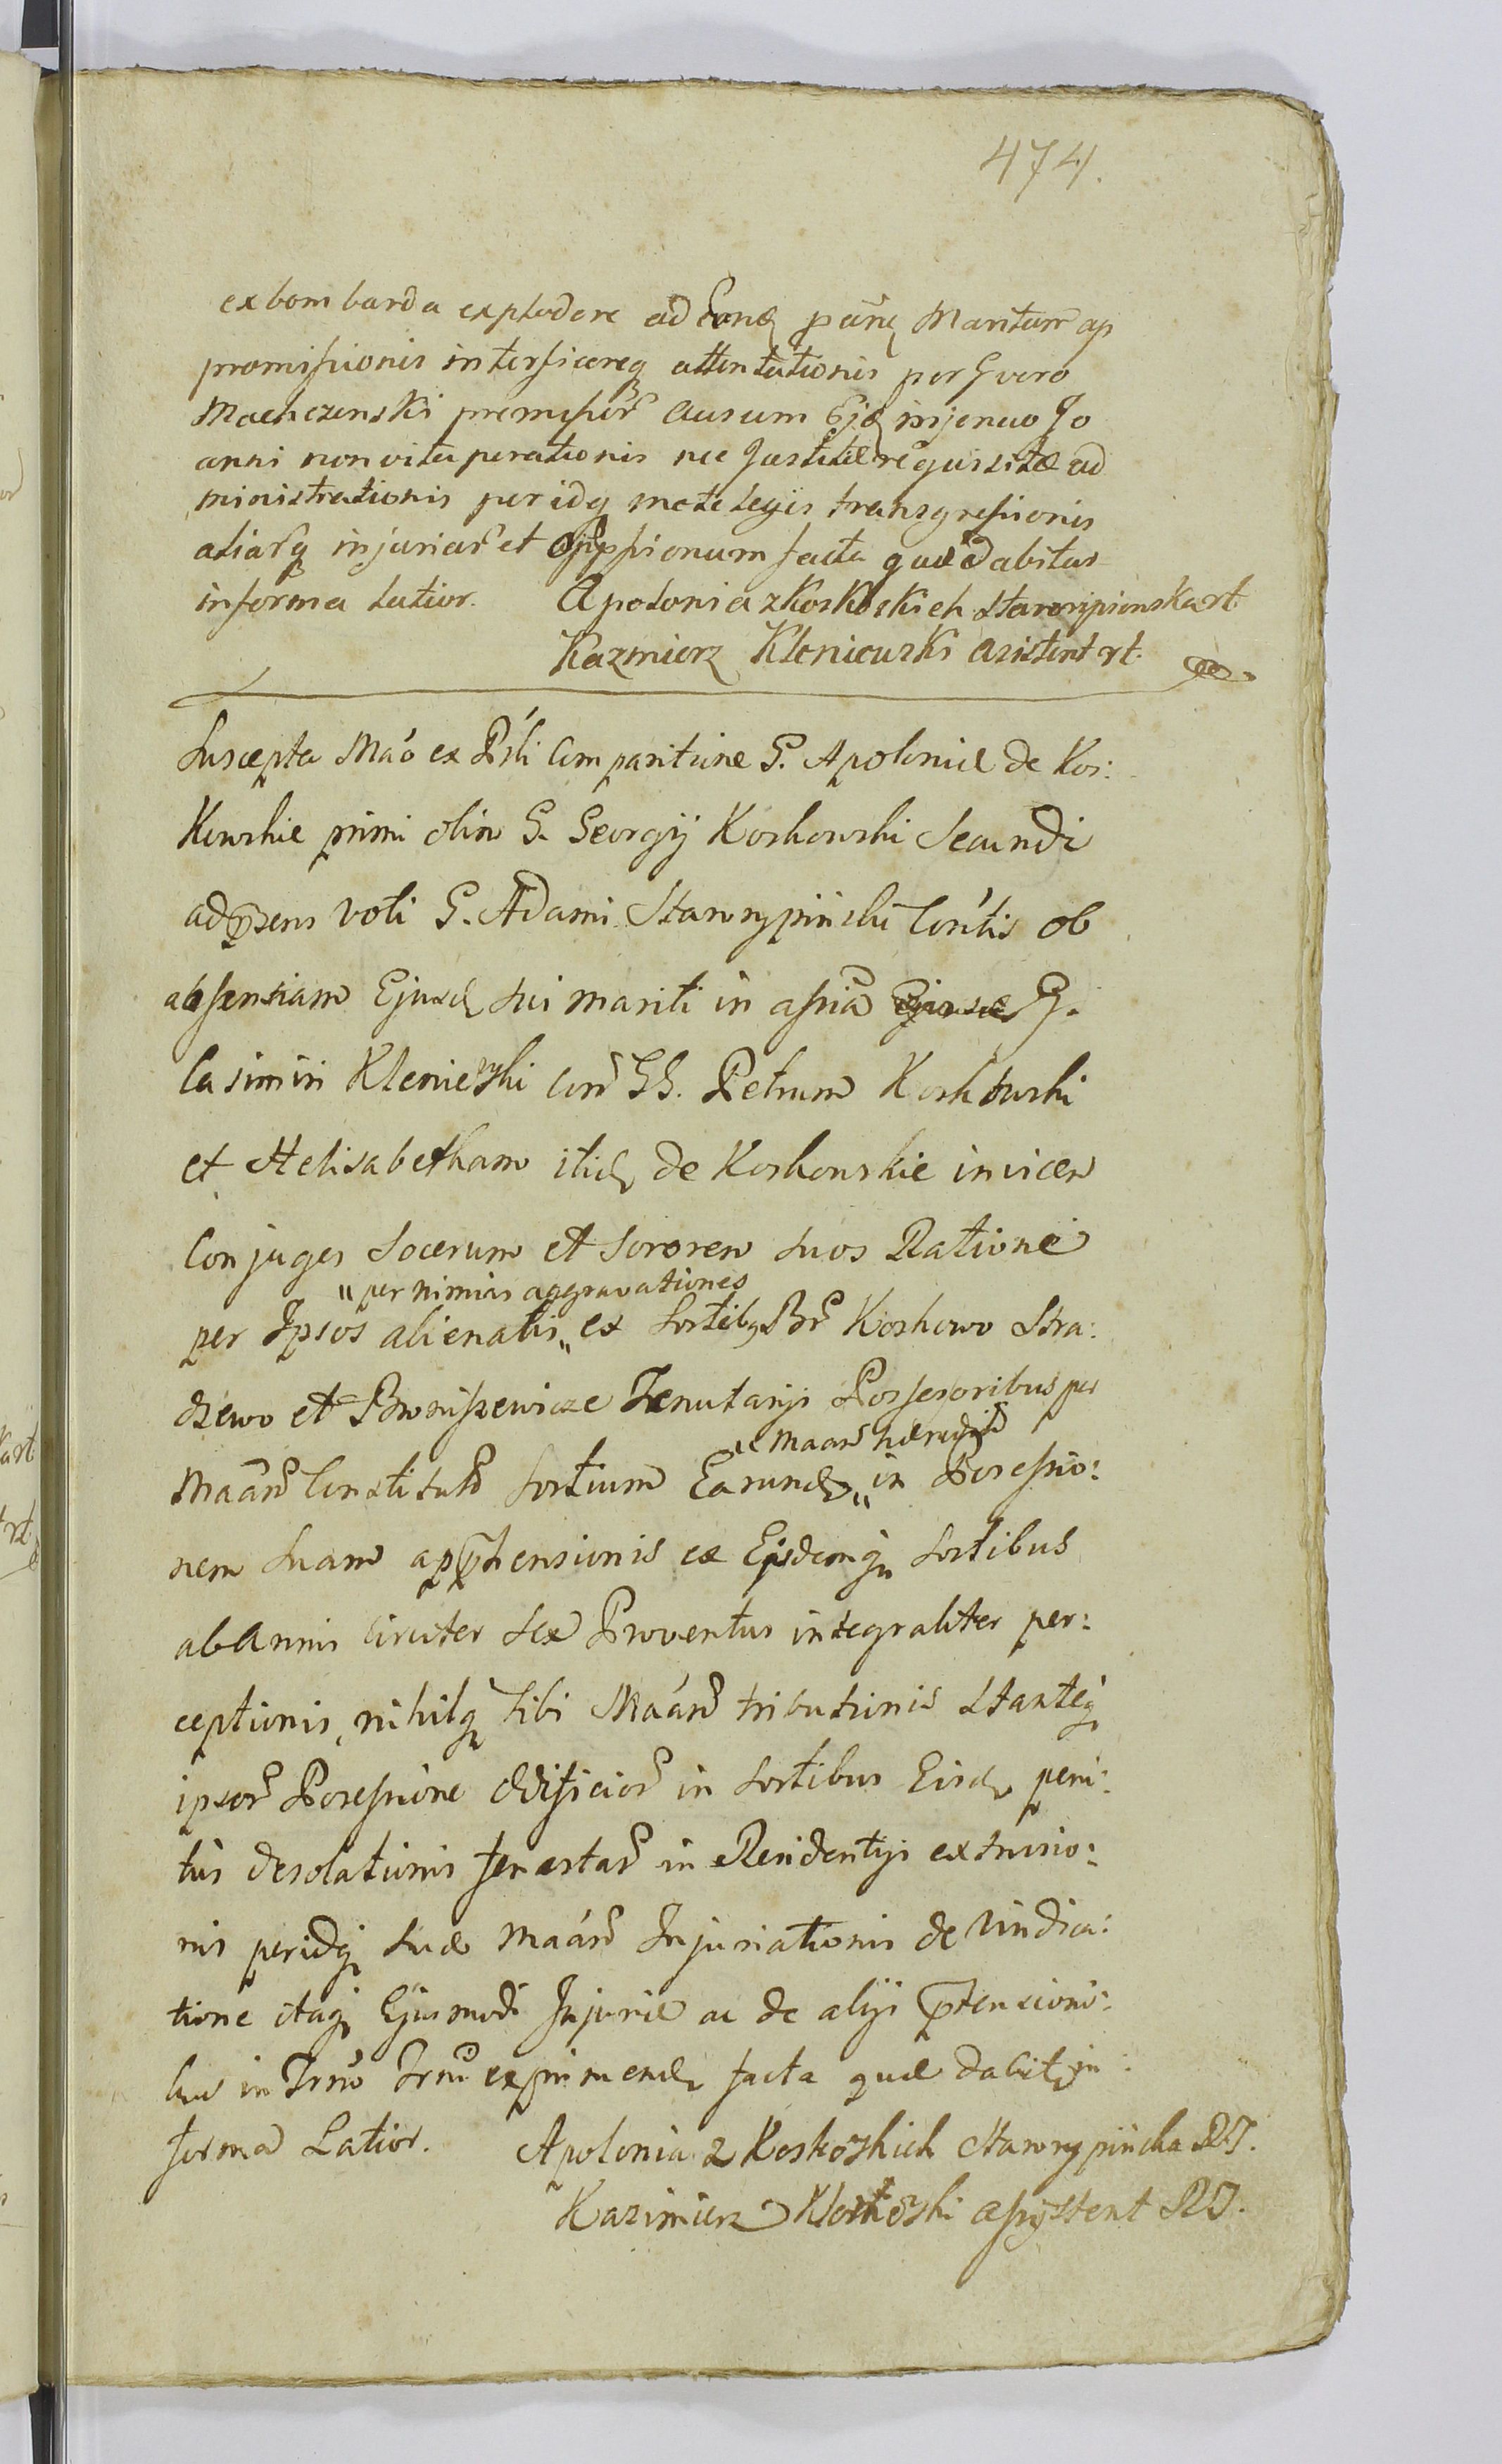 474.
ex bombarda explodere ad Eand parte Maritum ap
promissionis interficereq attentationis per G vero
Machczenski premissor ausum Ejd injenuo Jo
anni non vituperationis nec Justitiæ requisitæ ad
ministrationis per idq mete legis transgressionis
aliarq injuriar et oppssionum facta quæ dabitur
in forma latior. Apolonia z Koskoskich Staroripienska rt.
Kazmierz Klenieuski asistent rt.
Suscepta Mao ex Psti Comparitione G. Apoloniæ de Kos:
Kowskie primi olim G. Georgij Koskowski Secundi
ad psens voti G. Adami Stawrypiński Contis ob
absentiam Ejusd sui mariti in assia G.
Casimiri Kleniewski con GG. Petrum Koskowski
et Helisabetham itid de Koskowskie invicem
Conjuges Socerum et Sororem suos Ratione
" per nimias aggravationes
per Ipsos alienatis " ex Sortibq Br Koskowo Stra:
dzewo et Broniszewicze Tenutarijs Possessoribus per
ac Maam hæredit
Maam Constitut Sortium Earund " in Possessio:
nem suam apphensionis ex Eisdemq Sortibus
ab Annis circiter Sex Proventus integraliter per:
ceptionis, nihilq Sibi Maam tributionis Stanteq
ipsor Possessione ædificior in Sortibus Eisd peni:
tus desolationis fenestar in Residentijs extrusio:
nis per idq suæ Maam Injuriationis de Vindica:
tione itaq Ejusmodi Injuriæ ac de alijs ptensioni:
bus in Trmo Trmi exprimend facta quæ dabit in
forma Latior. Apolonia z Koskoskich Stawrypińska RT.
Kazimierz assystent RT.